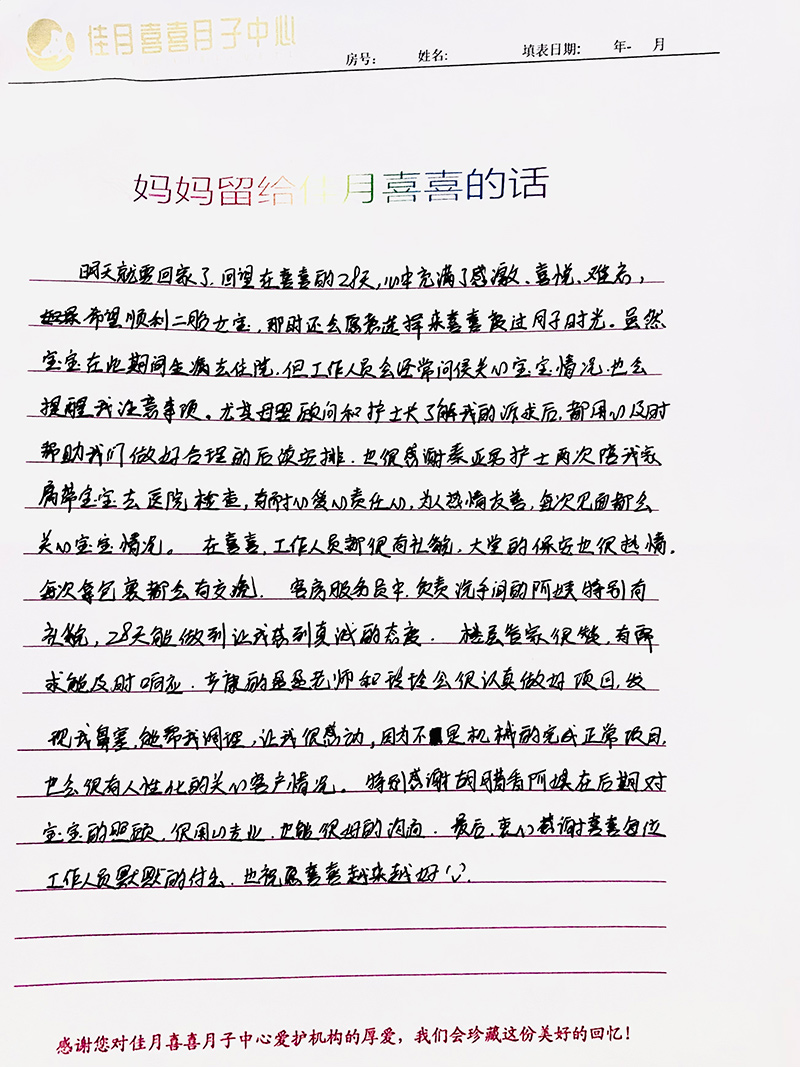 佳月喜喜月子中心
房号： 姓名: 填表日期: 年- 月
妈妈留给佳月喜喜的话
明天就要回家了，回望在喜喜的28天，心中充满了感激、喜悦、难忘，
如果希望顺利二胎女宝，那时还会愿意选择来喜喜度过月子时光。虽然
宝宝在此期间生病去住院，但工作人员会经常问侯关心宝宝情况，也会
提醒我注意事项。尤其母婴顾问和护士长了解我的诉求后，都用心及时
帮助我们做好合理的后续安排。也很感谢秦亚男护士两次陪我家
属带宝宝去医院检查，有耐心爱心责任心，为人热情友善，每次见面都会
关心宝宝情况。 在喜喜，工作人员都很有礼貌，大堂的保安也很热情。
每次拿包裹都会有交流。 客房服务员中，负责洗手间的阿姨特别有
礼貌，28天能做到让我感到真诚的态度。 楼层管家很赞，有需
求能及时响应。产康的老师和会很认真做好项目，发
现我鼻塞，能帮我调理，让我很感动，因为不是机械的完成正常项目，
也会很有人性化的关心客户情况。 特别感谢胡腊香阿姨在后期对
宝宝的照顾，很用心专业，也能很好的沟通。 最后，衷心感谢喜喜每位
工作人员默默的付出，也祝愿喜喜越来越好
感谢您对佳月喜喜月子中心爱护机构的厚爱，我们会珍藏这份美好的回忆！